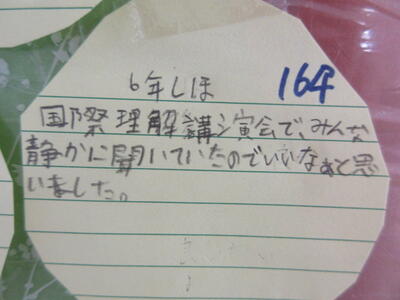 6年しほ 164
国際理解講演会で、みんな
静かに聞いていたのでいいなぁと思
いました。